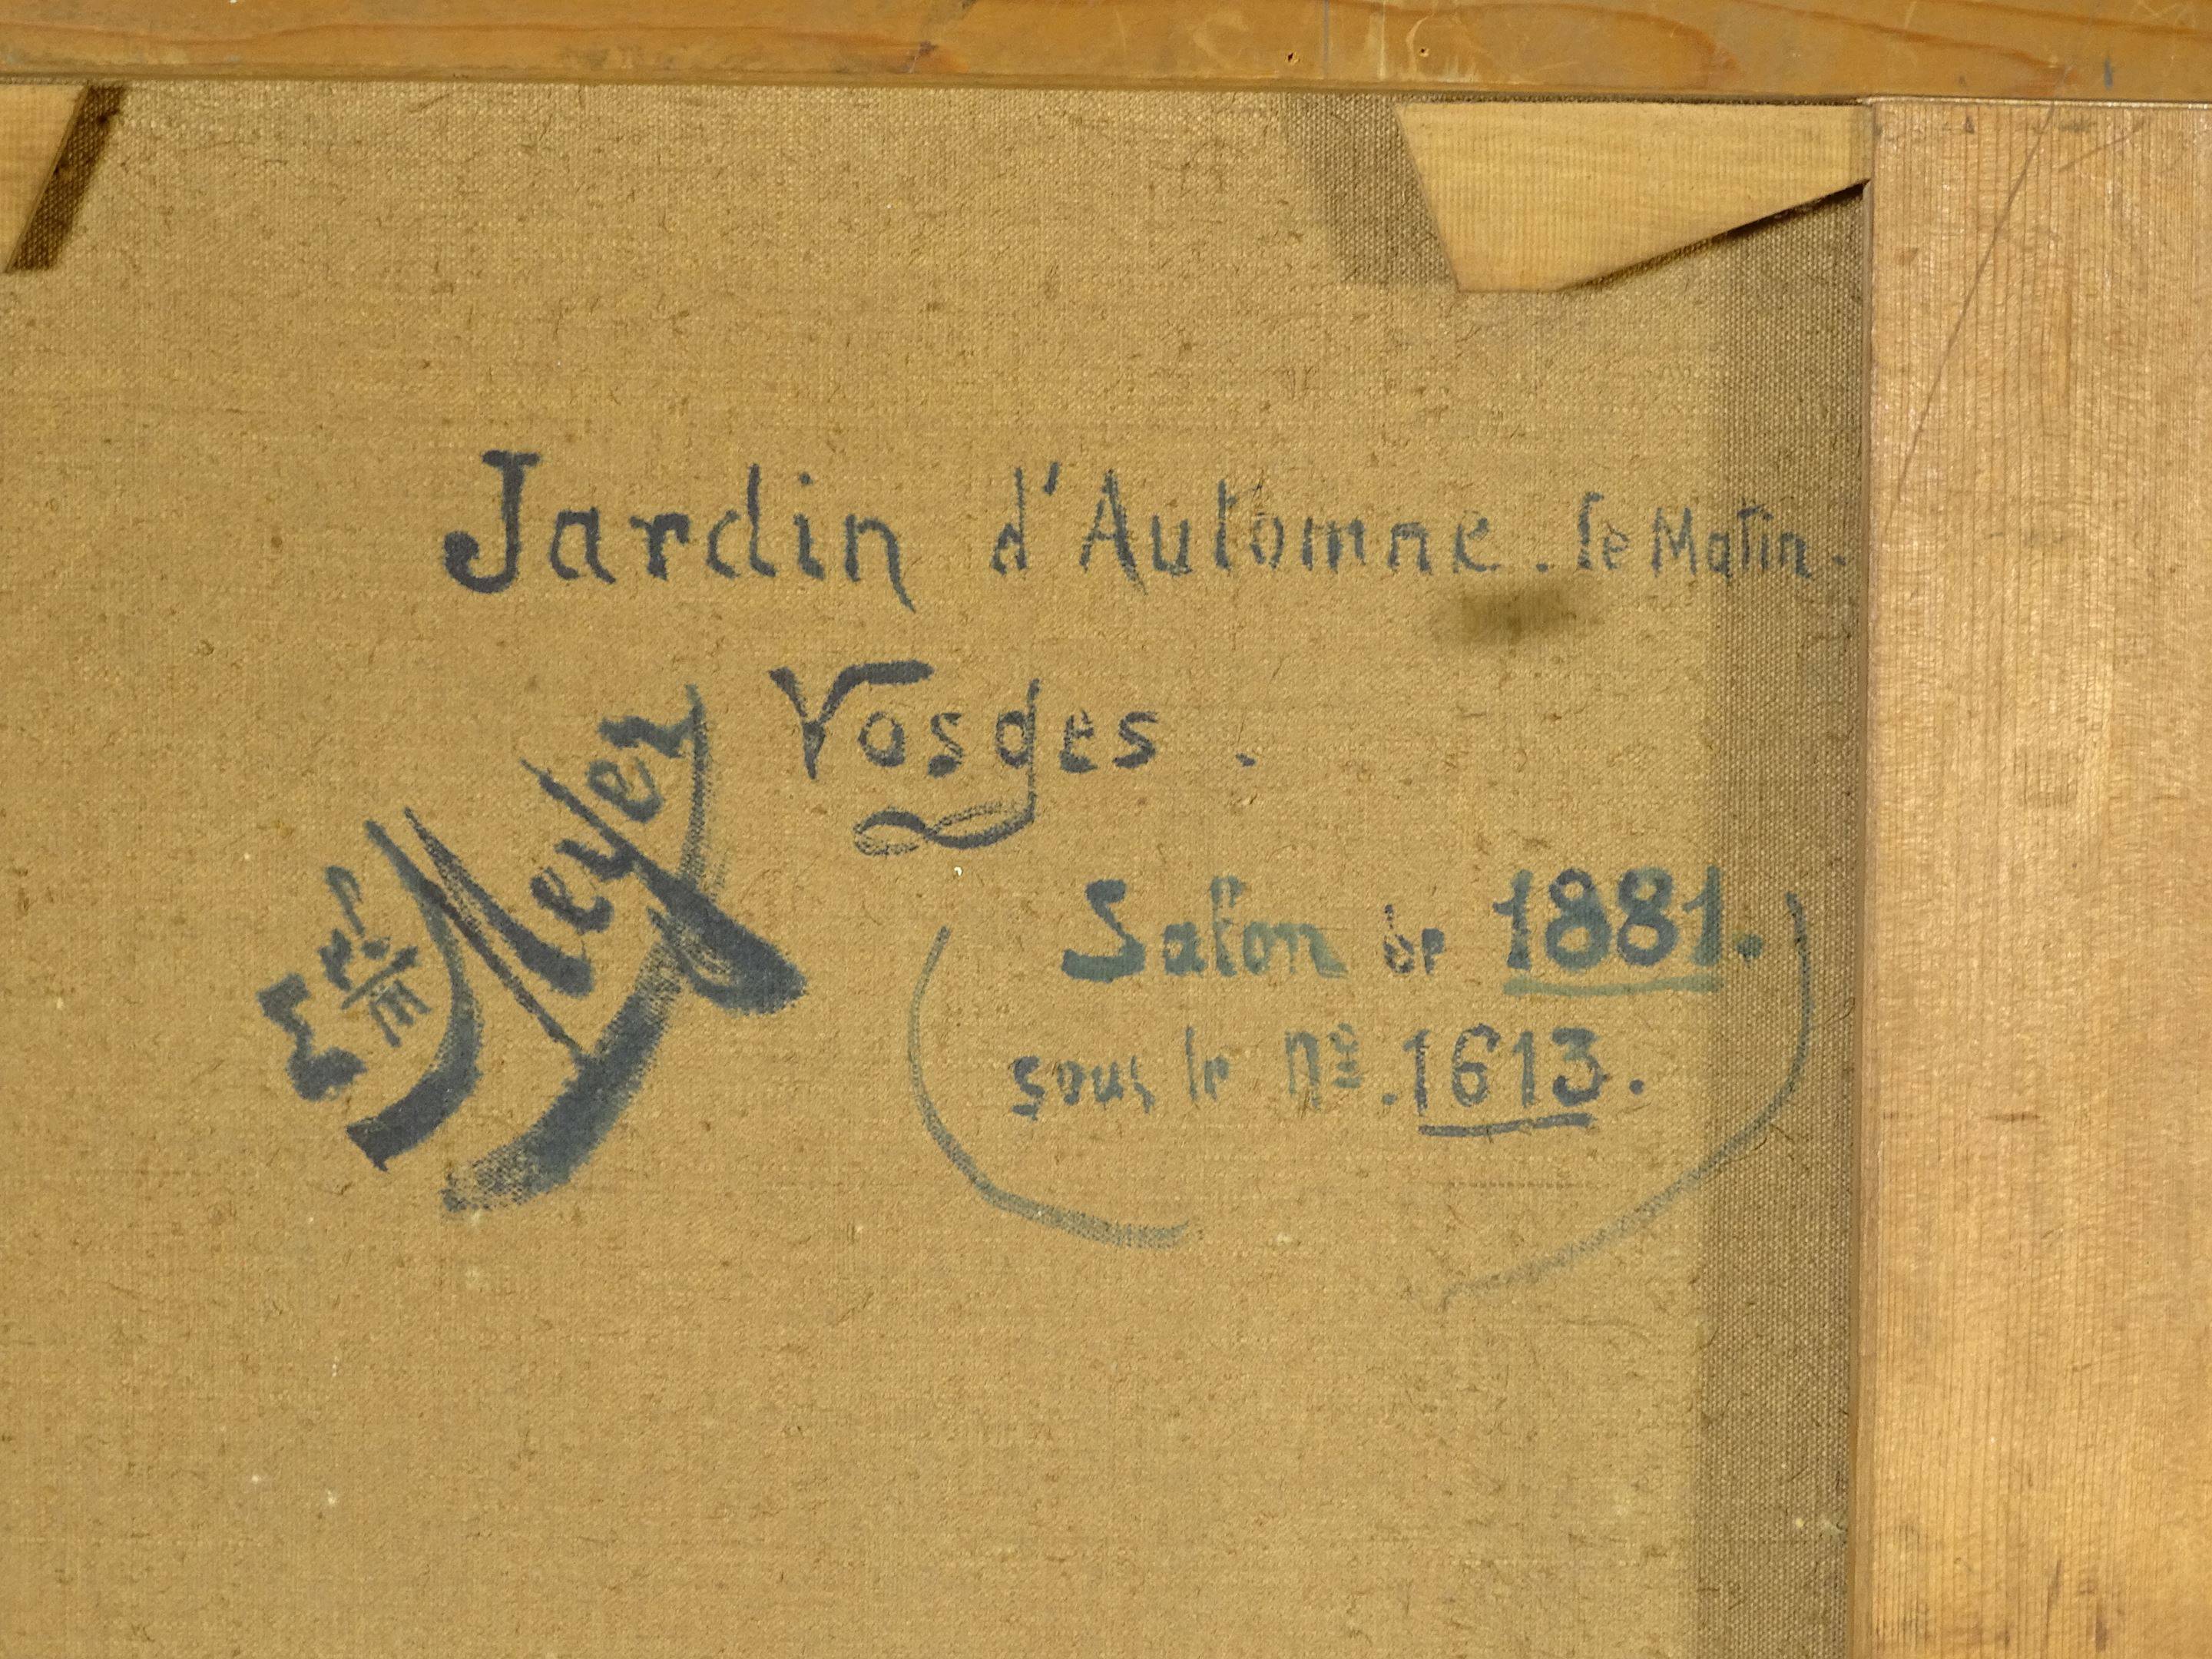 Jardin d'Automne. le Matin.
Vosges.
Meyer
Salon de 1881.
sous le no. 1613.